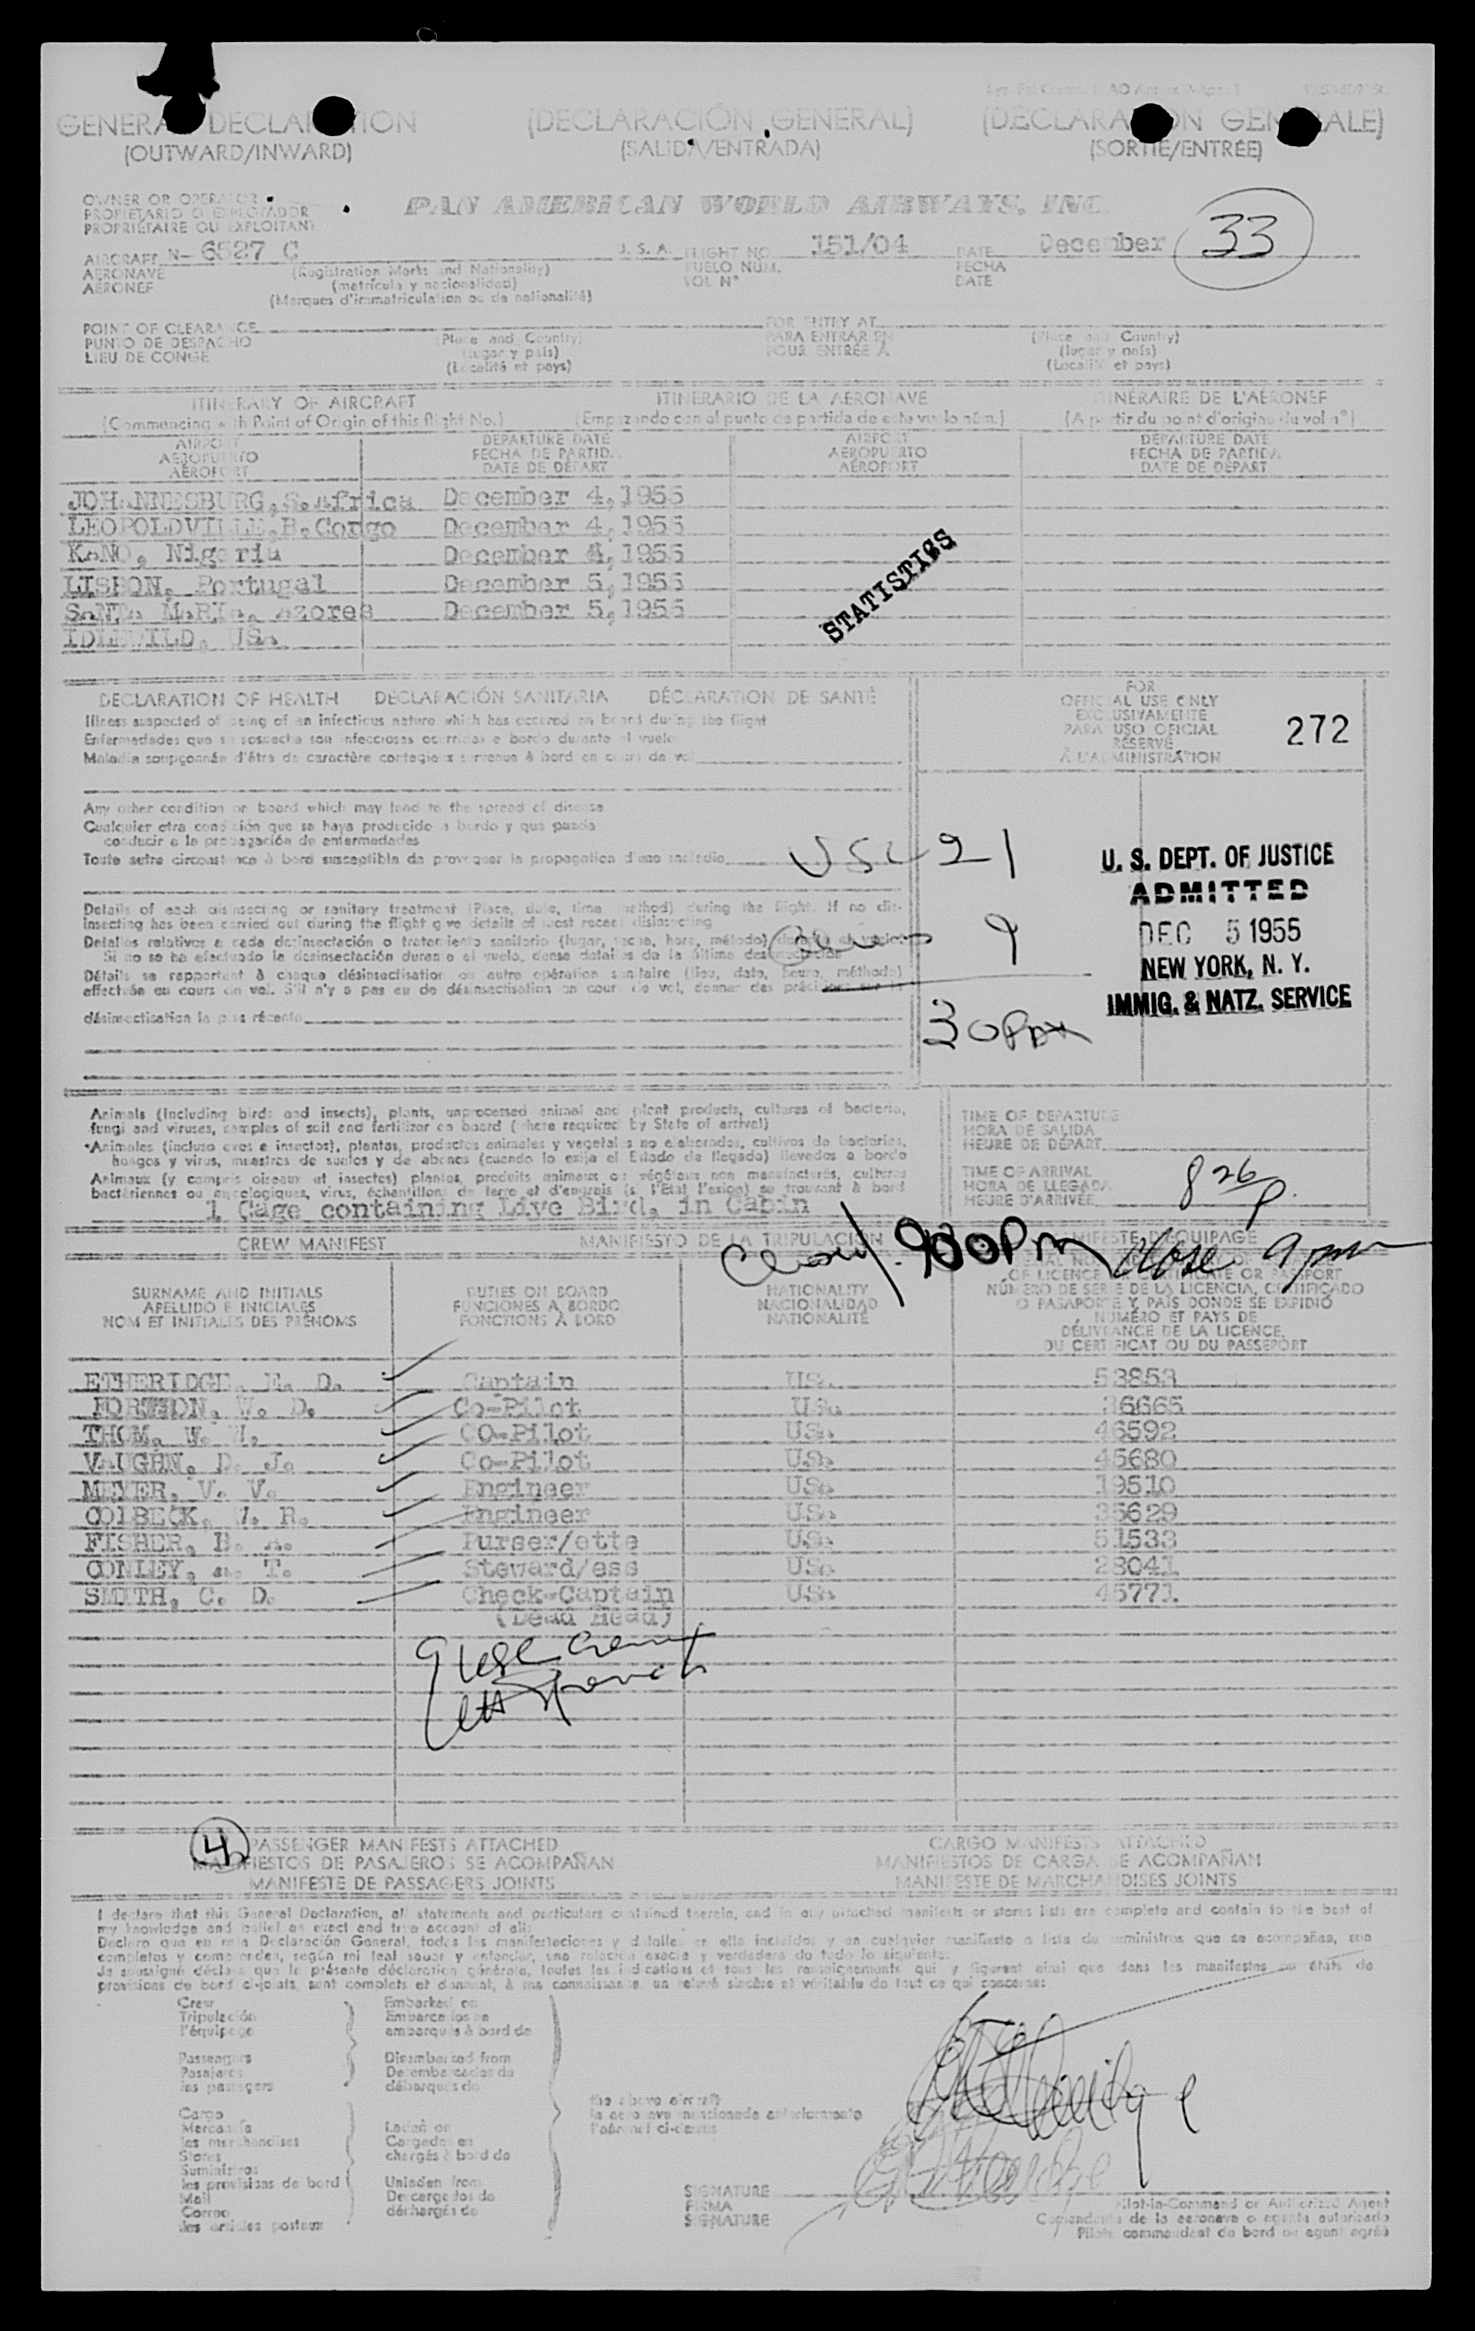 GENERAL DECLARATION (DECLARACIÓN GENERAL) (DÉCLARATION GENERALE)
(OUTWARD/INWARD) (SALIDA/ENTRADA) (SORTIE/ENTRÉE)
OWNER OR OPERATOR
PROPIETARIO O EXPLOTADOR
PROPRIÉTAIRE OU EXPLOITANT
PAN AMERICAN WORLD AIRWAYS, INC.
33
AIRCRAFT N- 6527 C U. S. A. FLIGHT NO. 151/04 DATE December
AERONAVE (Registration Marks and Nationality) VUELO NÚM. FECHA
AÉRONEF (matrícula y nacionalidad) VOL N° DATE
(Marques d'immatriculation ou de nationalité)
POINT OF CLEARANCE FOR ENTRY AT
PUNTO DE DESPACHO (Place and Country) PARA ENTRAR EN (Place and Country)
LIEU DE CONGÉ (lugar y país) POUR ENTRÉE À (lugar y país)
(Localité et pays) (Localité et pays)
ITINERARY OF AIRCRAFT ITINERARIO DE LA AERONAVE ITINÉRAIRE DE L'AÉRONEF
(Commencing with Point of Origin of this flight No.) (Empezando con el punto de partida de este vuelo núm.) (A partir du point d'origine du vol n°)
AIRPORT DEPARTURE DATE AIRPORT DEPARTURE DATE
AEROPUERTO FECHA DE PARTIDA AEROPUERTO FECHA DE PARTIDA
AÉROPORT DATE DE DÉPART AÉROPORT DATE DE DÉPART
JOHANNESBURG, S. Africa December 4, 1955
LEOPOLDVILLE, B. Congo December 4, 1955
KANO, Nigeria December 4, 1955
LISBON, Portugal December 5, 1955
SANTA MARIA, Azores December 5, 1955
IDLEWILD, USA.
STATISTICS
DECLARATION OF HEALTH DECLARACIÓN SANITARIA DÉCLARATION DE SANTÉ
Illness suspected of being of an infectious nature which has occured on board during the flight
Enfermedades que se sospecha son infecciosas ocurridas a bordo durante el vuelo
Maladie soupçonnée d'être de caractère contagieux survenue à bord en cours de vol
FOR
OFFICIAL USE ONLY
EXCLUSIVAMENTE
PARA USO OFICIAL
RÉSERVÉ
À L'ADMINISTRATION
272
Any other condition on board which may lead to the spread of disease
Cualquier otra condición que se haya producido a bordo y que pueda
conducir a la propagación de enfermedades
Toute autre circonstance à bord susceptible de provoquer la propagation d'une maladie
USC 21
Aliens 9
30
Details of each disinsecting or sanitary treatment (Place, date, time, method) during the flight. If no dis-
insecting has been carried out during the flight give details of most recent disinsecting
Detalles relativos a cada desinsectación o tratamiento sanitario (lugar, fecha, hora, método) durante el vuelo.
Si no se ha efectuado la desinsectación durante el vuelo, dense detalles de la última desinsectación
Détails se rapportant à chaque désinsectisation ou autre opération sanitaire (lieu, date, heure, méthode)
effectuée au cours du vol. S'il n'y a pas eu de désinsectisation au cours de vol, donner des précisions sur la
désinsectisation la plus récente
U. S. DEPT. OF JUSTICE
ADMITTED
DEC 5 1955
NEW YORK, N. Y.
IMMIG. & NATZ. SERVICE
Animals (Including birds and insects), plants, unprocessed animal and plant products, cultures of bacteria,
fungi and viruses, samples of soil and fertilizer on board (where required by State of arrival)
Animales (incluso aves e insectos), plantas, productos animales y vegetales no elaborados, cultivos de bacterias,
hongos y virus, muestras de suelos y de abonos (cuando lo exija el Estado de llegada) llevados a bordo
Animaux (y compris oiseaux et insectes) plantes, produits animaux ou végétaux non manufacturés, cultures
bactériennes ou mycologiques, virus, échantillons de terre et d'engrais (si l'Etat l'exige) se trouvant à bord
1 Cage containing Live Bird, in Cabin
TIME OF DEPARTURE
HORA DE SALIDA
HEURE DE DÉPART
TIME OF ARRIVAL
HORA DE LLEGADA
HEURE D'ARRIVÉE
8 26 p.
900 Pm close 9 pm
CREW MANIFEST MANIFIESTO DE LA TRIPULACIÓN MANIFESTE D'ÉQUIPAGE
SURNAME AND INITIALS DUTIES ON BOARD NATIONALITY OF LICENCE OR CERTIFICATE OR PASSPORT
APELLIDO E INICIALES FUNCIONES A BORDO NACIONALIDAD NÚMERO DE SERIE DE LA LICENCIA, CERTIFICADO
NOM ET INITIALES DES PRÉNOMS FONCTIONS À BORD NATIONALITÉ O PASAPORTE Y PAÍS DONDE SE EXPIDIÓ
NUMÉRO ET PAYS DE
DÉLIVRANCE DE LA LICENCE,
DU CERTIFICAT OU DU PASSEPORT
ETHERIDGE, E. D. Captain USA. 53853
V. D. Co-Pilot USA. 36665
THOM, W. CO-Pilot USA. 46592
VAUGHN, D. J. Co-Pilot USA. 45680
MEYER, V. V. Engineer USA. 19510
COLBECK, R. Engineer USA. 35629
FISHER, B. A. Purser/ette USA. 51533
CONLEY, A. T. Steward/ess USA. 28041
SMITH, C. D. Check-Captain USA. 45771
(Dead Head)
4
PASSENGER MANIFESTS ATTACHED CARGO MANIFESTS ATTACHED
MANIFIESTOS DE PASAJEROS SE ACOMPAÑAN MANIFIESTOS DE CARGA SE ACOMPAÑAN
MANIFESTE DE PASSAGERS JOINTS MANIFESTE DE MARCHANDISES JOINTS
I declare that this General Declaration, all statements and particulars contained therein, and in any attached manifests or stores lists are complete and contain to the best of
my knowledge and belief an exact and true account of all:
Declaro que en esta Declaración General, todas las manifestaciones y detalles en ella incluidos y en cualquier manifiesto o lista de suministros que se acompañan, son
completos y comprenden, según mi leal saber y entender, una relación exacta y verdadera de todo lo siguiente:
Je soussigné déclare que la présente déclaration générale, toutes les indications et tous les renseignements qui y figurent ainsi que dans les manifestes ou états de
provisions de bord ci-joints, sont complets et donnent, à ma connaissance, un relevé sincère et véritable de tout ce qui concerne:
Crew Embarked on
Tripulación Embarcados en
l'équipage embarqués à bord de
Passengers Disembarked from
Pasajeros Desembarcados de
les passagers débarqués de
Cargo the above aircraft
Mercancía Laden on la aeronave mencionada anteriormente
les marchandises Cargados en l'aéronef ci-dessus
Stores chargés à bord de
Suministros
les provisions de bord Unladen from
Mail Descargados de
Correo déchargés de
les articles postaux
SIGNATURE
FIRMA
SIGNATURE
Pilot-in-Command or Authorized Agent
Comandante de la aeronave o agente autorizado
Pilote commandant de bord ou agent agréé